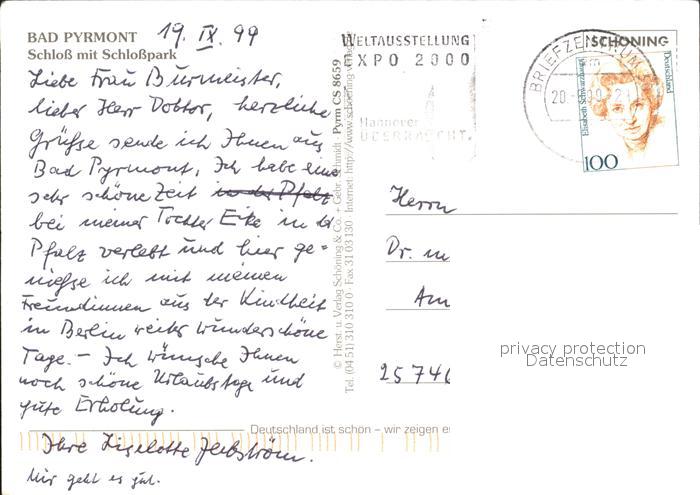 BAD PYRMONT
Schloß mit Schloßpark
19. IX. 99
Liebe Frau Burmeister,
lieber Herr Doktor, herzliche
Grüße sende ich Ihnen aus
Bad Pyrmont, Ich habe eine
sehr schöne Zeit in der Pfalz
bei meiner Tochter Eike in d
Pfalz verlebt und hier ge-
nieße ich mit meinen
Freundinnen aus der Kindheit
in Berlin weiter wunderschöne
Tage. – Ich wünsche Ihnen
noch schöne Urlaubstage und
gute Erholung.
Ihre Liselotte
Mir geht es gut.
© Herst. u. Verlag Schöning & Co. + Gebr. Schmidt · Pyrm CS 8659
Tel. (04 51) 310 310 0 · Fax 31 03 130 · Internet: http://www.schoening-
WELTAUSSTELLUNG
EXPO 2000
Hannover
UEBERRASCHT.
BRIEFZENTRUM
20.-9.99-21
SCHÖNING
Elisabeth Schwarzhaupt
Deutschland
100
Herrn
Dr. m
Am
25746
privacy protection
Datenschutz
Deutschland ist schön – wir zeigen e